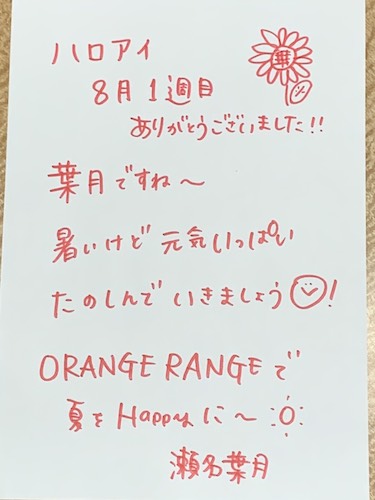 ハロアイ
葉
8月1週目
ありがとうございました!!
葉月ですね〜
暑いけど元気いっぱい
たのしんでいきましょう!
ORANGE RANGEで
夏をHappyに〜
瀬名葉月